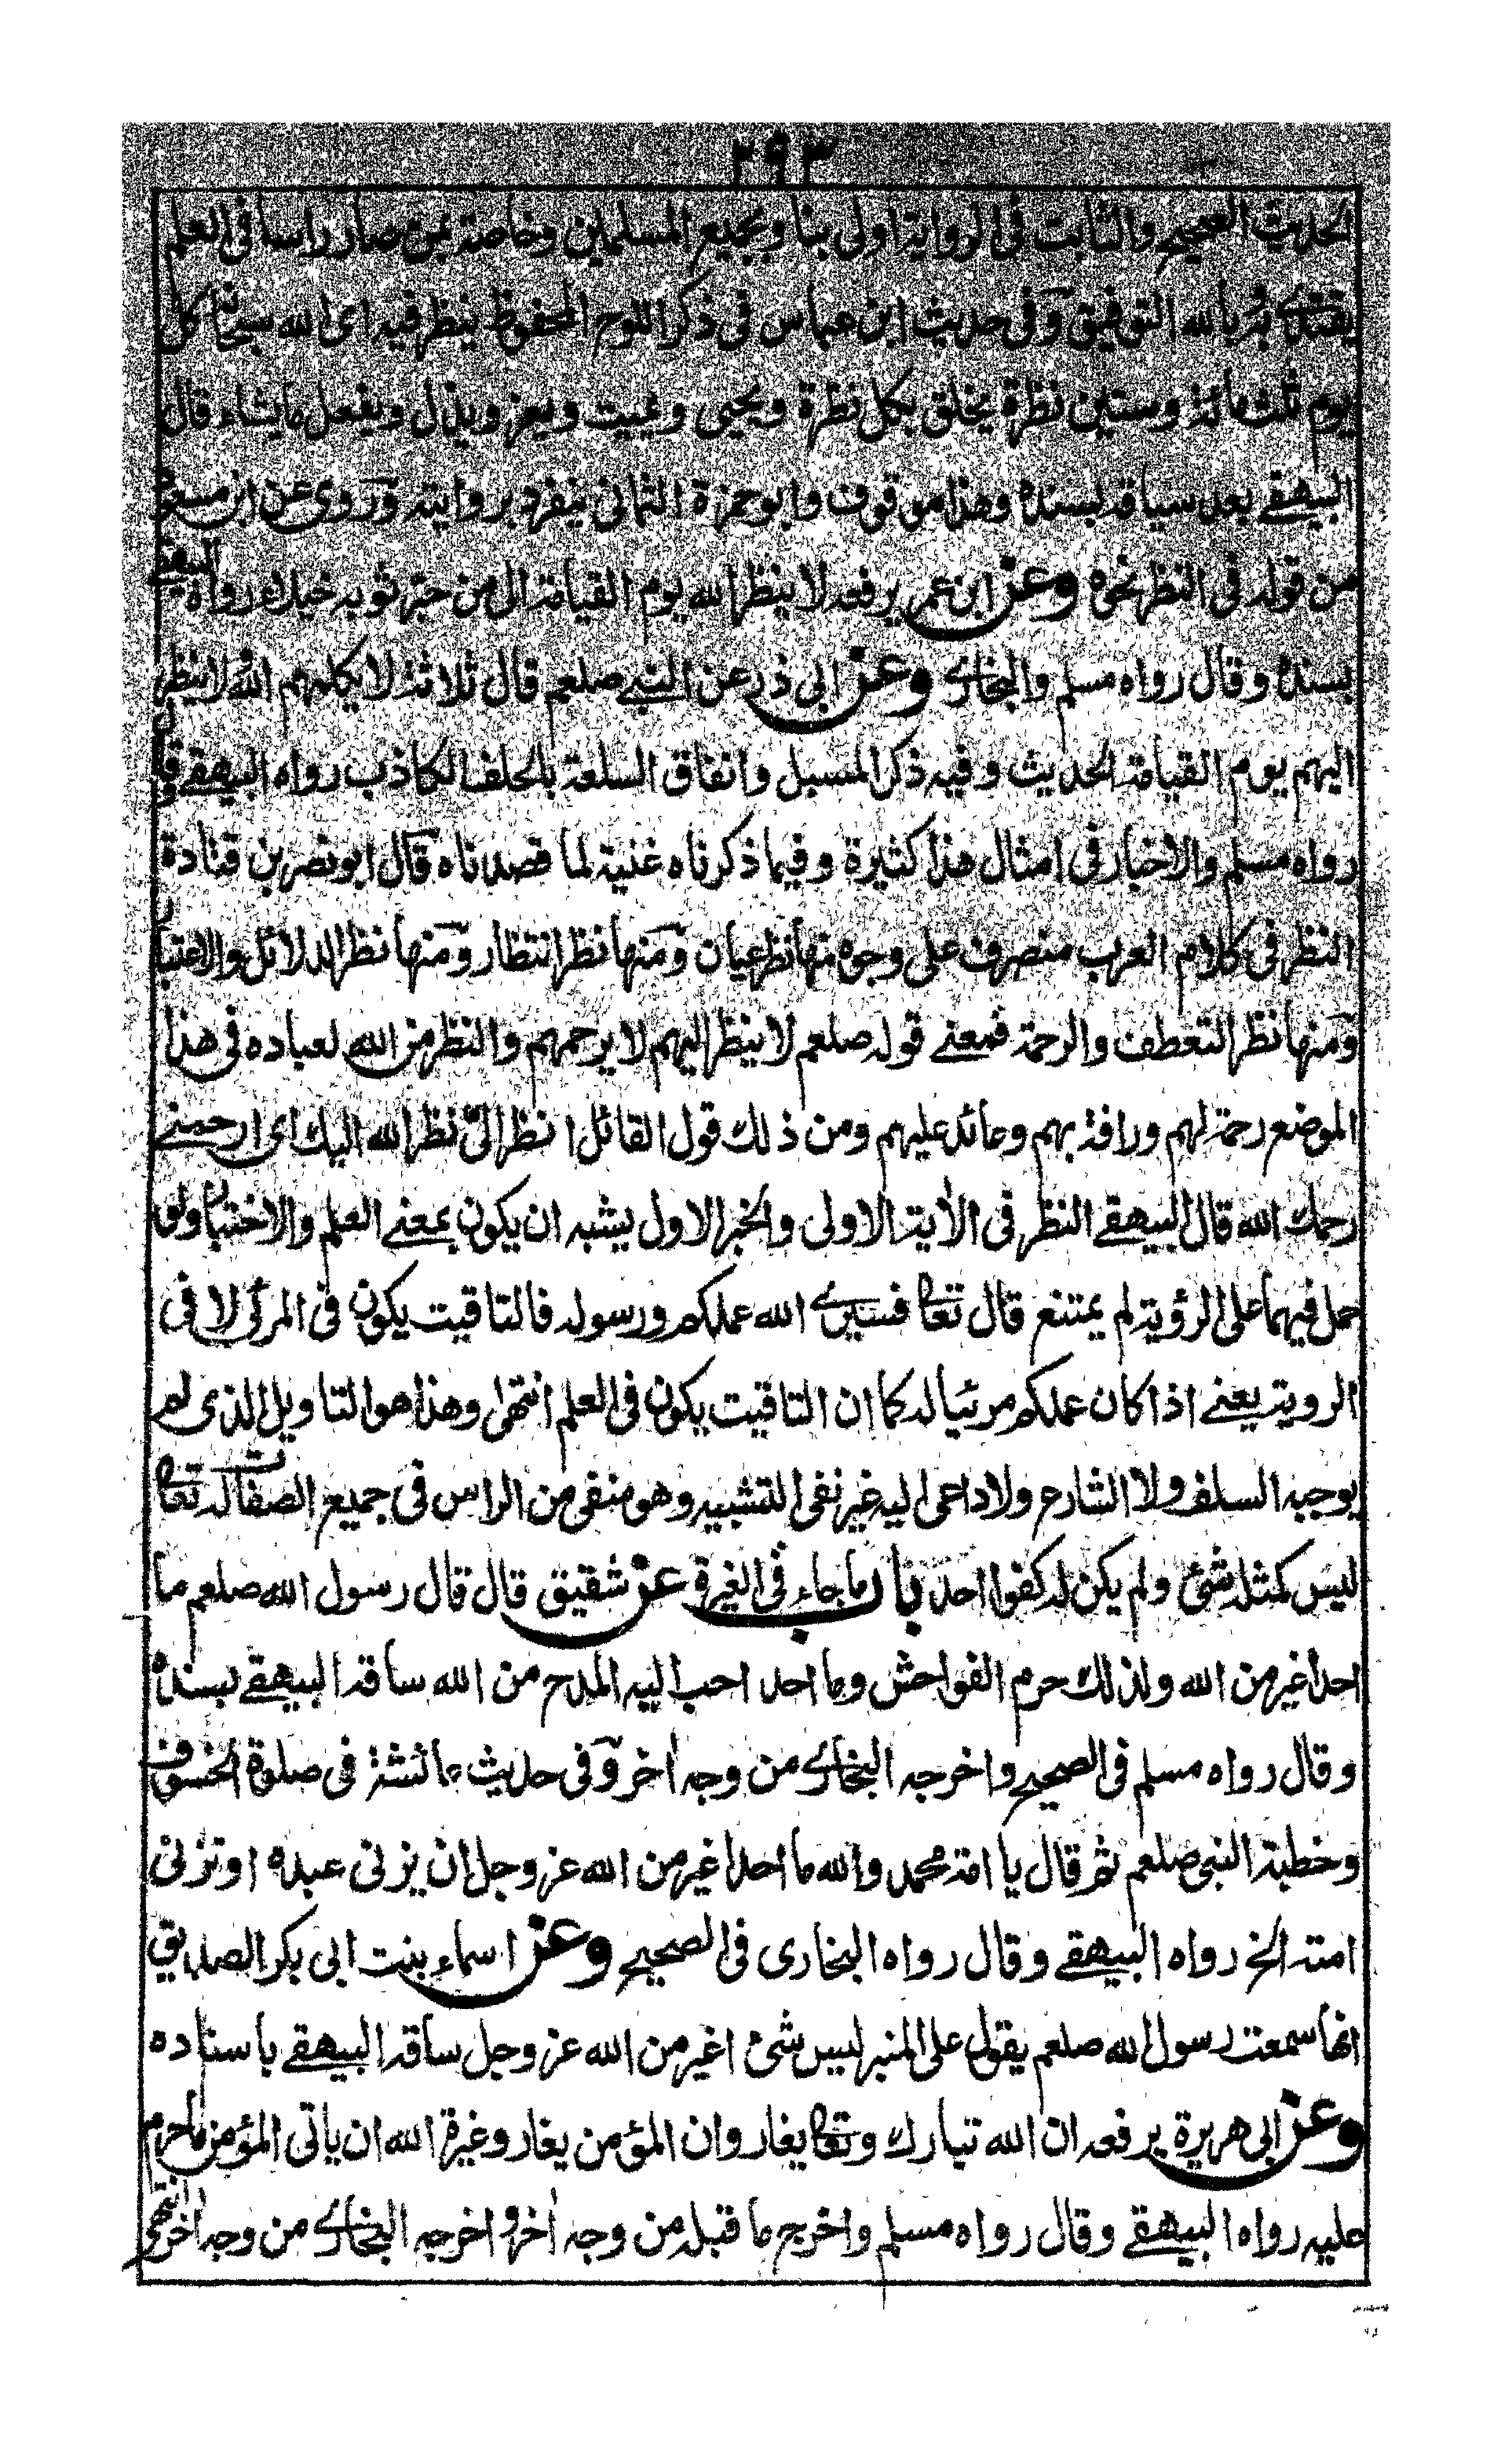 ٢٩٣
الحديث الصحيح والثابت فى الرواية اولى بنا وبجميع المسلمين وخاصة بمن صار راسا فى العلم
يقتدى به وبالله التوفيق وفى حديث ابن عباس فى ذكر اللوح المحفوظ ينظر فيه اى الله سبحانه كل
يوم ثلث مائة وستين نظرة يخلق بكل نظرة ويحيى ويميت ويعز ويذل ويفعل ما يشاء قال
البيهقے بعد سياقه بسنده وهذا موقوف وابو حمزة الثمالى ينفرد بروايته وروى عن ابن مسعود
من قوله فى النظر نحوه وعن ابن عمر يرفعه لا ينظر الله يوم القيامة الى من جر ثوبه خيلاء رواه البيهقے
بسنده وقال رواه مسلم والبخارى وعن ابى ذر عن النبے صلعم قال ثلاثة لا يكلمهم الله ولا ينظر
اليهم يوم القيامة الحديث وفيه ذكر المسبل وانفاق السلعة بالحلف الكاذب رواه البيهقے وقال
رواه مسلم والاخبار فى امثال هذا كثيرة وفيما ذكرناه غنية لما قصدناه قال ابو نصر بن قتادة
النظر فى كلام العرب منصرف على وجوه منها نظر عيان ومنها نظر انتظار ومنها نظر الدلائل والاعتبار
ومنها نظر التعطف والرحمة فمعنے قوله صلعم لا ينظر اليهم لا يرحمهم والنظر من الله لعباده فى هذا
الموضع رحمة لهم ورافة بهم وعائد عليهم ومن ذلك قول القائل انظر الىّ نظر الله اليك اى ارحمنے
رحمك الله قال البيهقے النظر فى الأية الاولى والخبر الاول يشبه ان يكون بمعنے العلم والاختبار ولو
حمل فيهما على الرؤية لم يمتنع قال تعا فسيرى الله عملكم ورسوله فالتاقيت يكون فى المرئى لا فى
الروية يعنے اذا كان عملكم مرئيا له كما ان التاقيت يكون فى العلم انتهى وهذا هو التاويل الذى لم
يوجبه السلف ولا الشارع ولا داعى اليه غير نفى التشبيه وهو منفى من الراس فى جميع الصفات له تعا
ليس كمثله شئ ولم يكن له كفوا احد باب ما جاء فى الغيرة عن شقيق قال قال رسول الله صلعم ما
احد اغير من الله ولذلك حرم الفواحش وما احد احب اليه المدح من الله ساقه البيهقے بسنده
وقال رواه مسلم فى الصحيح واخرجه البخارى من وجه اخر وفى حديث عائشة فى صلوة الخسوف
وخطبة النبى صلعم ثم قال يا امة محمد والله ما احد اغير من الله عز وجل ان يزنى عبده او تزنى
امته الخ رواه البيهقے وقال رواه البخارى فى الصحيح وعن اسماء بنت ابى بكر الصديق
انها سمعت رسول الله صلعم يقول على المنبر ليس شئ اغير من الله عز وجل ساقه البيهقے باسناده
وعن ابى هريرة يرفعه ان الله تبارك وتعا يغار وان المؤمن يغار وغيرة الله ان ياتى المؤمن ما حرم
عليه رواه البيهقے وقال رواه مسلم واخرج ما قبله من وجه اخر واخرجه البخارى من وجه اخر انتهى